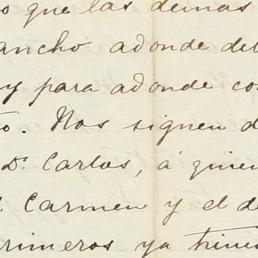 o que las demas
ancho adonde de
y para adonde co
o. Nos siguen d
Dn. Carlos, á quien
Carmen y el d
rimeros ya